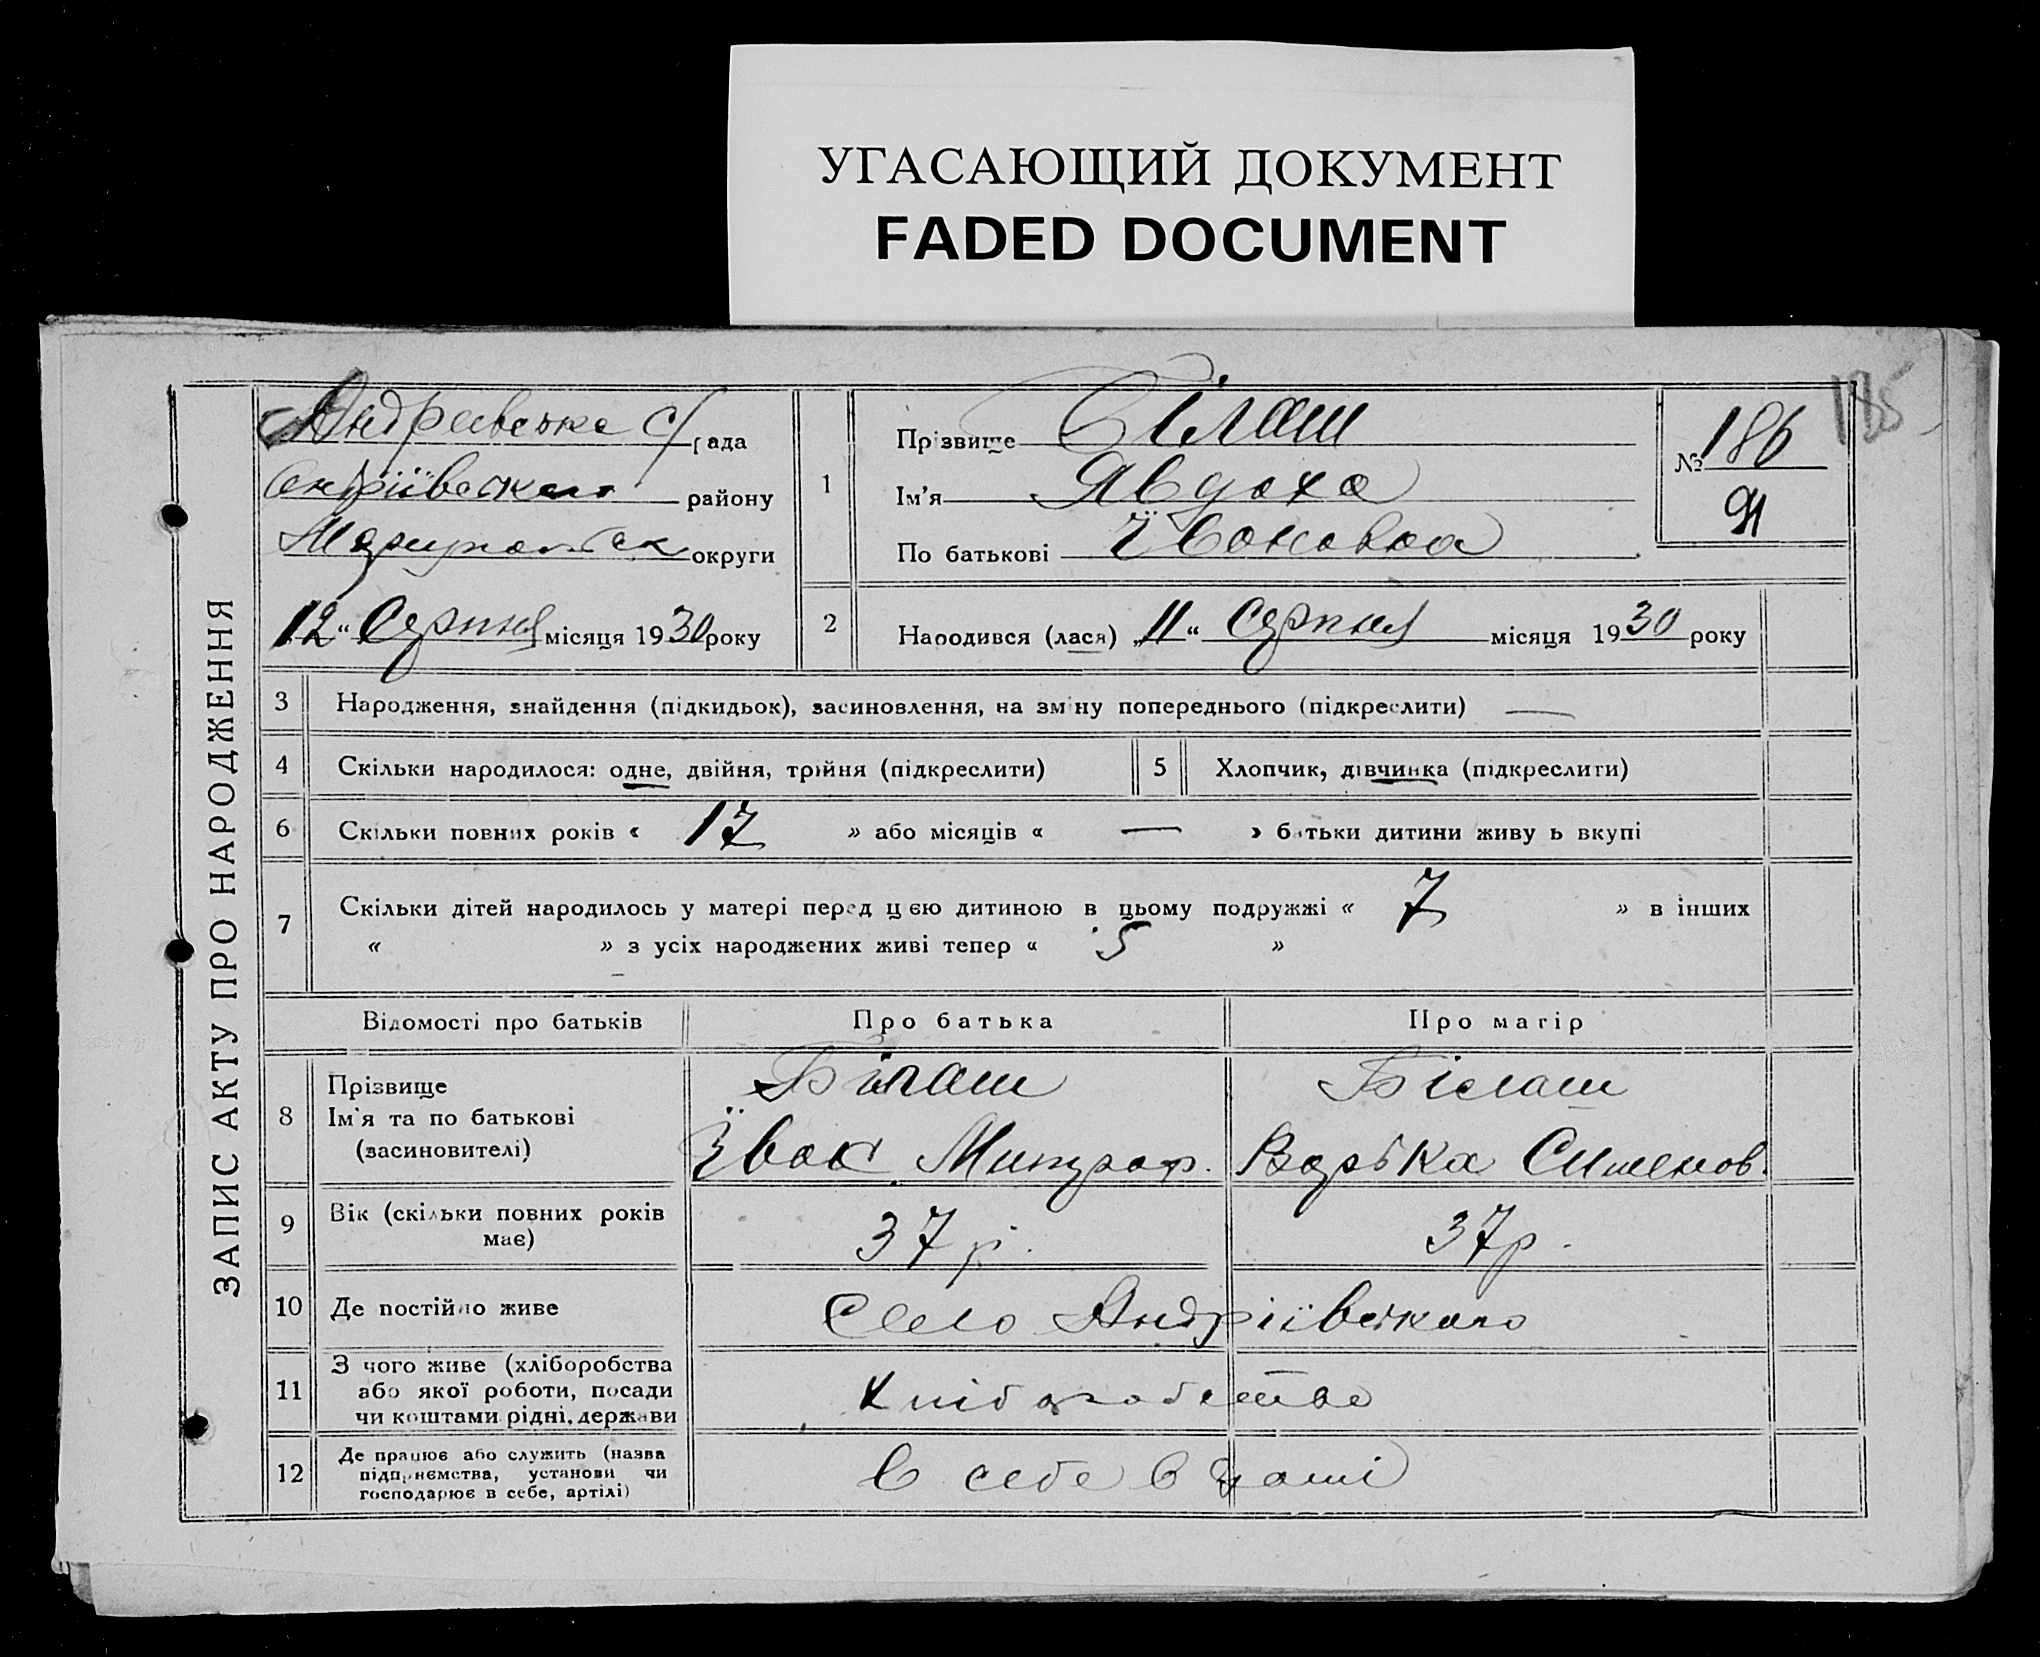 УГАСАЮЩИЙ ДОКУМЕНТ
FADED DOCUMENT
185
ЗАПИС АКТУ ПРО НАРОДЖЕННЯ
Андреевська с/рада
Андріївського району
Мариупольск округи
12 " Серпня місяця 1930 року
1
Прізвище Білаш
Ім'я Явдоха
По батькові Ївоновна
№ 186
91
2
Народився (лася) „11 " Серпня місяця 1930 року
3 Народження, знайдення (підкидьок), засиновлення, на зміну попереднього (підкреслити) —
4 Скільки народилося: одне, двійня, трійня (підкреслити) 5 Хлопчик, дівчинка (підкреслити)
6 Скільки повних років « 17 » або місяців « — » батьки дитини живуть вкупі
7 Скільки дітей народилось у матері перед цією дитиною в цьому подружжі « 7 » в інших
« » з усіх народжених живі тепер « 5 »
Відомості про батьків Про батька Про матір
8 Прізвище
Ім'я та по батькові
(засиновителі)
Білаш
Ївон Митроф.
Білаш
Варька Сименов.
9 Вік (скільки повних років має) 37 р. 37 р.
10 Де постійно живе Село Андріївського
11 З чого живе (хліборобства
або якої роботи, посади
чи коштами рідні, держави
Хліборобства
12 Де працює або служить (назва
підприємства, установи чи
господарює в себе, артілі)
в себе в